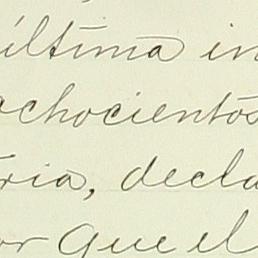 última in
ochocientos
ria, decla
or que el